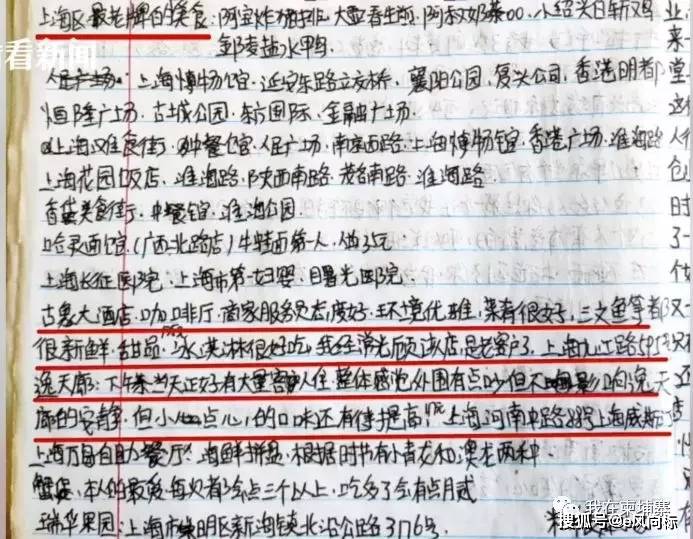 看看新闻
上海区最老牌的美食:阿宝炸猪排.大壶春生煎.阿叔奶茶00.小绍兴白斩鸡
盐水鸭
人民广场.上海博物馆.延安东路立交桥.襄阳公园.复兴公司.香港明都
恒隆广场.古城公园.东方国际.金融广场
上海美食街.中餐馆.人民广场.南京西路.上海博物馆.香港广场.淮海路
上海花园饭店.淮海路.陕西南路.茂名南路.淮海路
美食街.中餐馆.淮海公园
哈灵面馆.(广西北路店)牛特面第一人.做25元
上海长征医院.上海市第一妇婴.曙光医院
古象大酒店.咖啡厅.商家服务员态度好.环境优雅.菜肴很好.三文鱼等都
很新鲜.甜品.冰淇淋很好吃.我经常光顾该店.是老客户了.上海九江路595
逸天廊:下午茶.当天正好有大量客人住.整体感觉外围有点吵但不影响逸天
廊的安静.但小点心的口味还有待提高.上海河南中路88号上海威斯
上海万自助餐厅.海鲜拼盘.根据时节有小青龙和澳龙两种
蟹,本人的最爱.每次有会点三个以上.吃多了会有点月贰
瑞华果园:上海市崇明区新海镇北沿公路3176号.
业
来
堂
人
仓
时
了
我在柬埔寨
搜狐号@